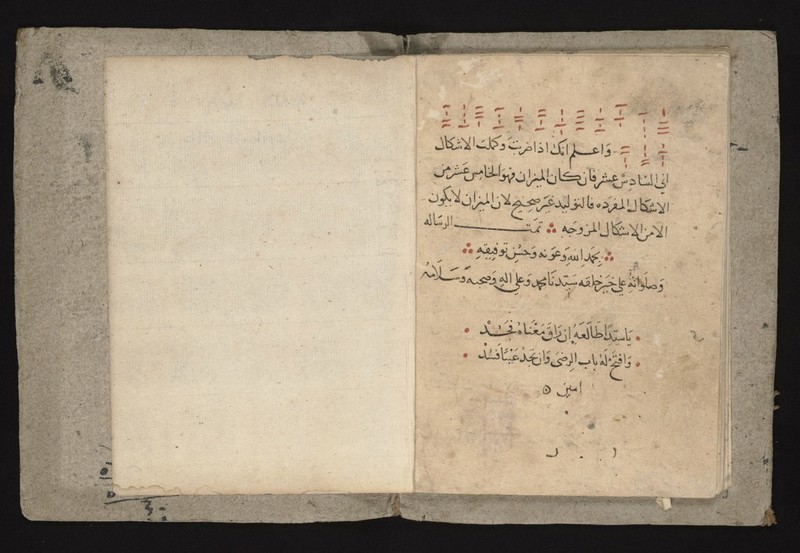 واعلم انك اذا ضربت وكملت الاشكال
الي السادس عشر فان كان الميزان وهو الخامس عشر من
الاشكال المفرده فالتوليد غير صحيح لان الميزان لا يكون
الا من الاشكال المزوجه تمت الرساله
بحمد الله وعونه وحسن توفيقه
وصلواته علي خير خلقه سيدنا محمد وعلي اله وصحبه وسلامه
يا سيدا طالعه ان راق مغناه فجد
وافتح له باب الرضي وان تجد عيبا فسد
امين